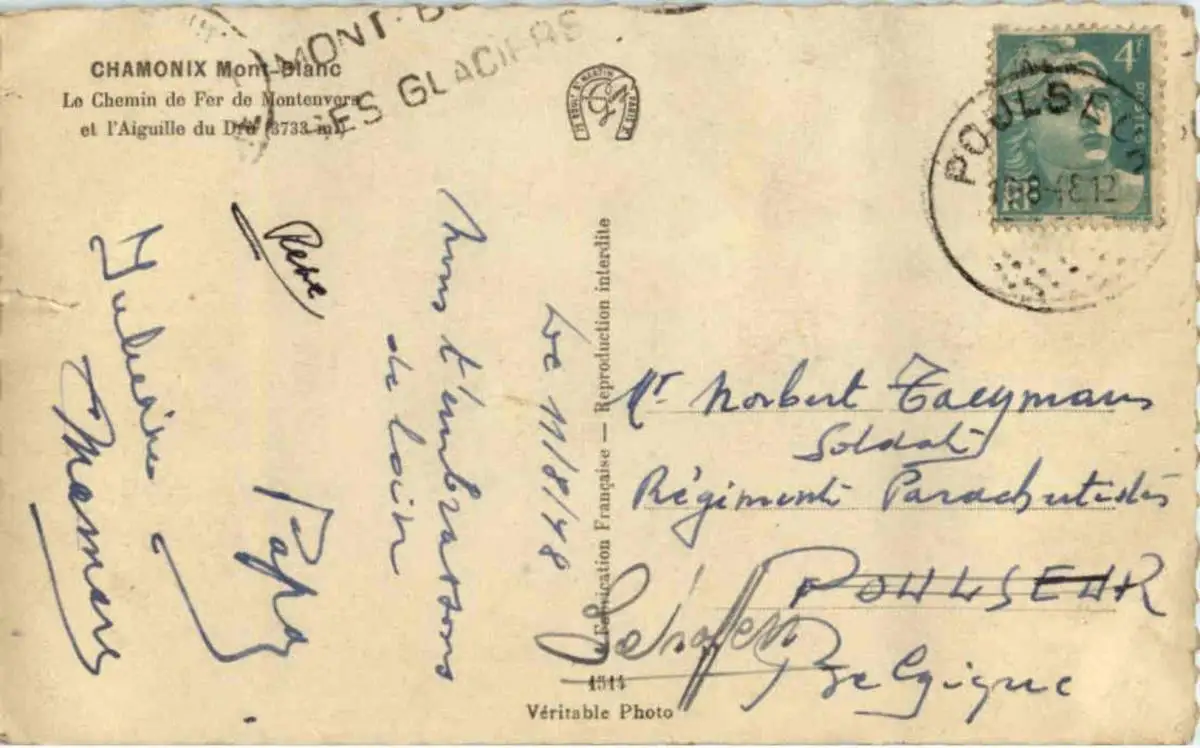 CHAMONIX Mont-Blanc
Le Chemin de Fer de Montenvers
et l'Aiguille du Dru (3733 m)
MONT-B
LES GLACIERS
POULSEUR
8-48.12
4F
POSTES
RF
Le 11/8/48
Nous t'embrassons
de loin
Papa
Maman
Mr Norbert Taeymans
Soldat
Régiment Parachutistes
POULSEUR
Belgique
Fabrication Française — Reproduction interdite
1514
Véritable Photo